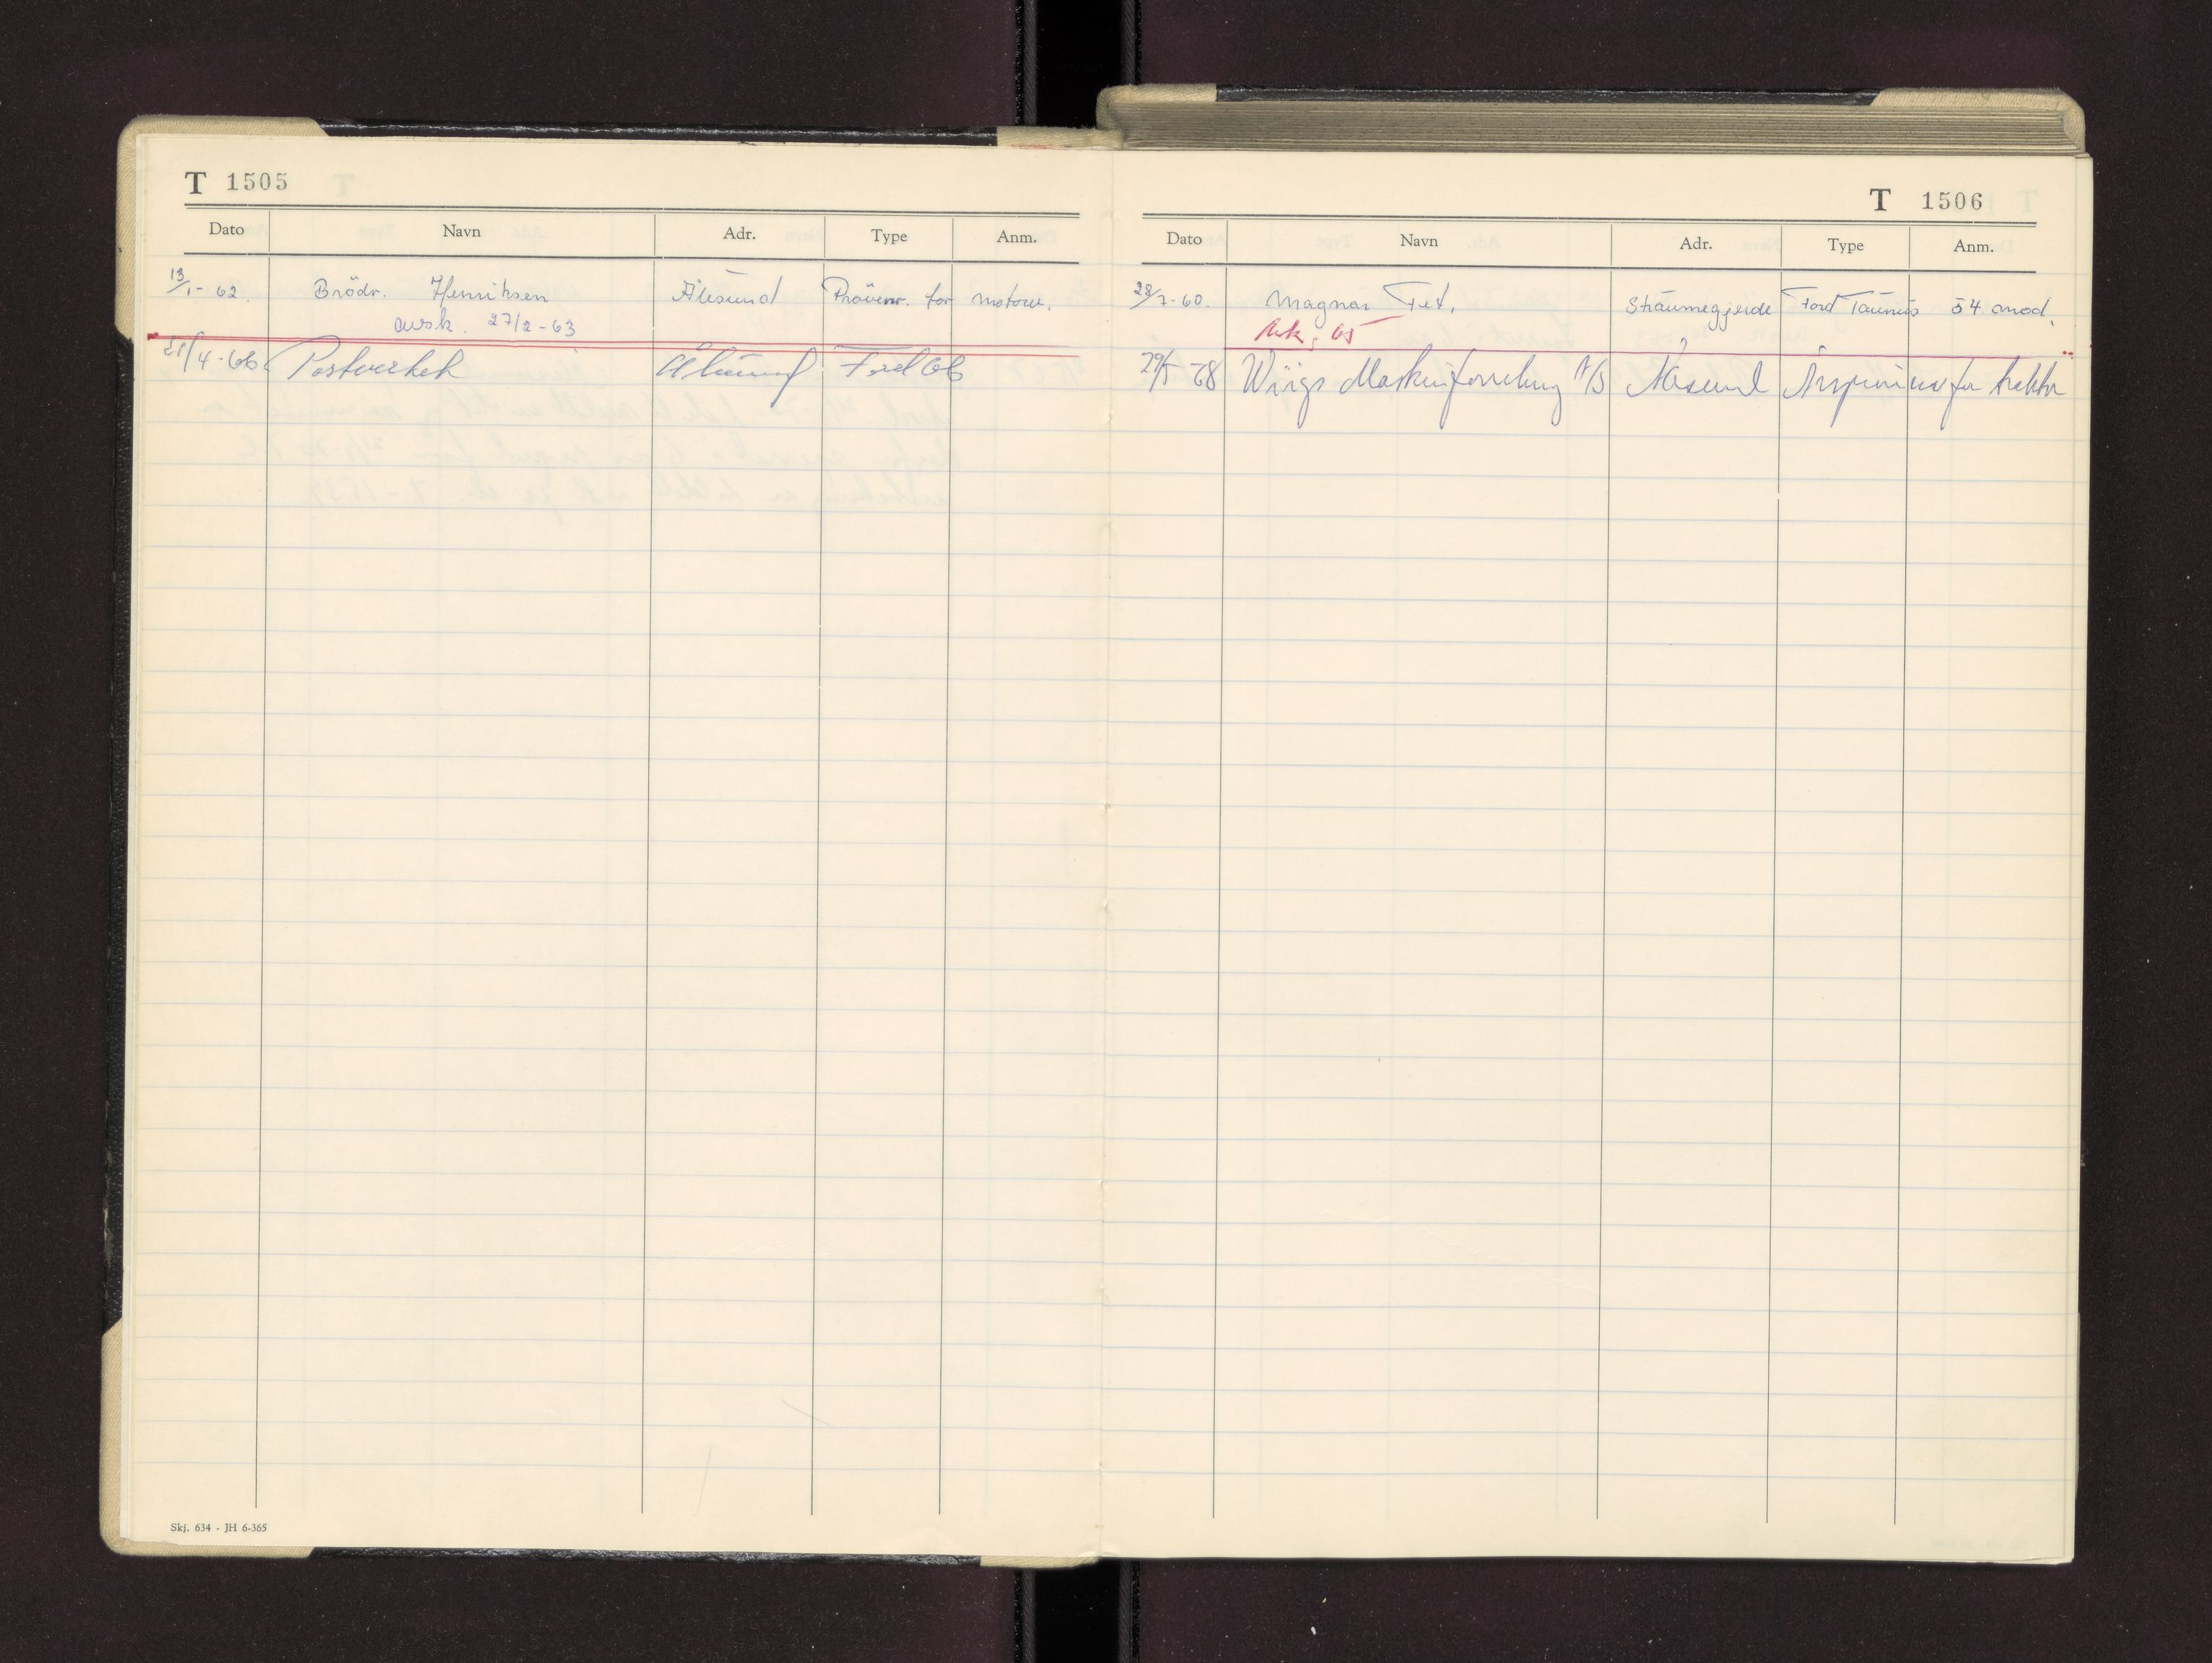 T 1505
Dato Navn Adr. Type Anm.
13/1-62. Brödr. Henriksen Ålesund Prövenr. for motorv.
avsk. 27/2-63
21/4-66 Postverket Ålesund Ford 66
Skj. 634 - JH 6-365
T 1506
Dato Navn Adr. Type Anm.
28/7-60. Magnar Fet. Straumegjerde Ford Taunus 54 mod.
Avsk. 65
29/5-68 Wiigs Maskinforretning A/S Ålesund Årsprøvenr for traktor